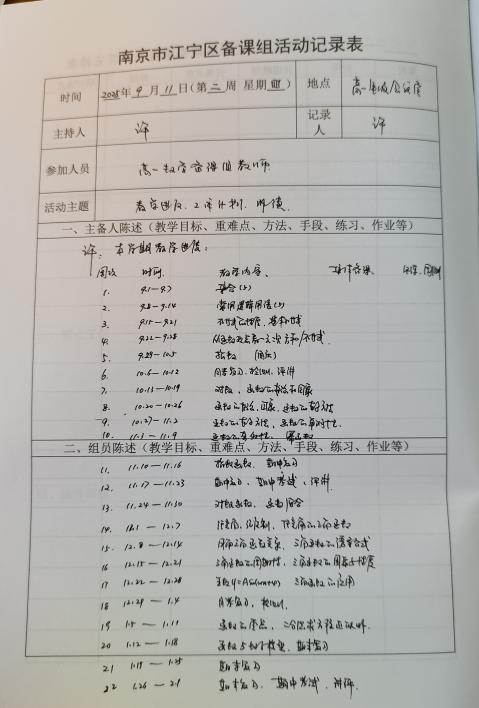 南京市江宁区备课组活动记录表
时间 2025年9月11日(第二周 星期四) 地点 高一年级会议室
主持人 许 记录人 许
参加人员 高一数学备课组教师
活动主题 教学进度、工作计划
一、主备人陈述(教学目标、重难点、方法、手段、练习、作业等)
许:本学期教学进度:
周次 时间 教学内容
1. 9.1-9.7 集合(1)
2. 9.8-9.14 常用逻辑用语(2)
3. 9.15-9.21 不等式的性质、基本不等式
4. 9.22-9.28 从函数观点看一元二次方程/不等式
5. 9.29-10.5 指数(国庆)
6. 10.6-10.12 月考复习、检测、讲评
7. 10.13-10.19 对数、函数的概念和图象
8. 10.20-10.26 函数的
9. 10.27-11.2
10. 11.3-11.9 函数的奇偶性、幂函数
二、组员陈述(教学目标、重难点、方法、手段、练习、作业等)
11. 11.10-11.16 指数函数、期中复习
12. 11.17-11.23 期中复习、期中考试、讲评
13. 11.24-11.30 对数函数、函数综合
14. 12.1-12.7 任意角、弧度制、任意角的三角函数
15. 12.8-12.14 同角三角函数关系、三角函数的诱导公式
16 12.15-12.21 三角函数的周期性、三角函数的图象与性质
17 12.22-12.28 函数y=Asin(ωx+φ) 三角函数的应用
18 12.29-1.4 月考复习、检测
19 1.5-1.11 函数的零点、二分法求方程近似解
20 1.12-1.18 函数与数学模型、期末复习
21 1.19-1.25 期末复习
22 1.26-2.1 期末复习、期中考试、讲评